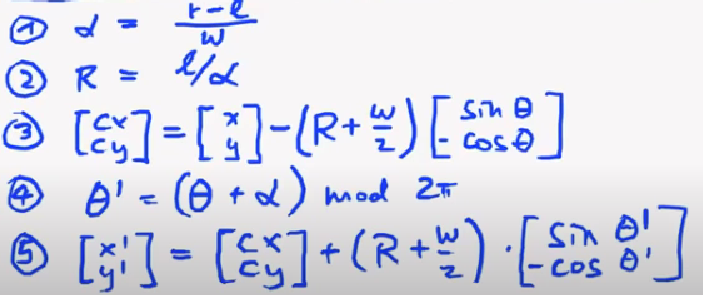 ① α = (r-l)/w
② R = l/α
③ [cx cy] = [x y] - (R + w/2) [sin θ -cos θ]
④ θ' = (θ + α) mod 2π
⑤ [x' y'] = [cx cy] + (R + w/2) · [sin θ' -cos θ']